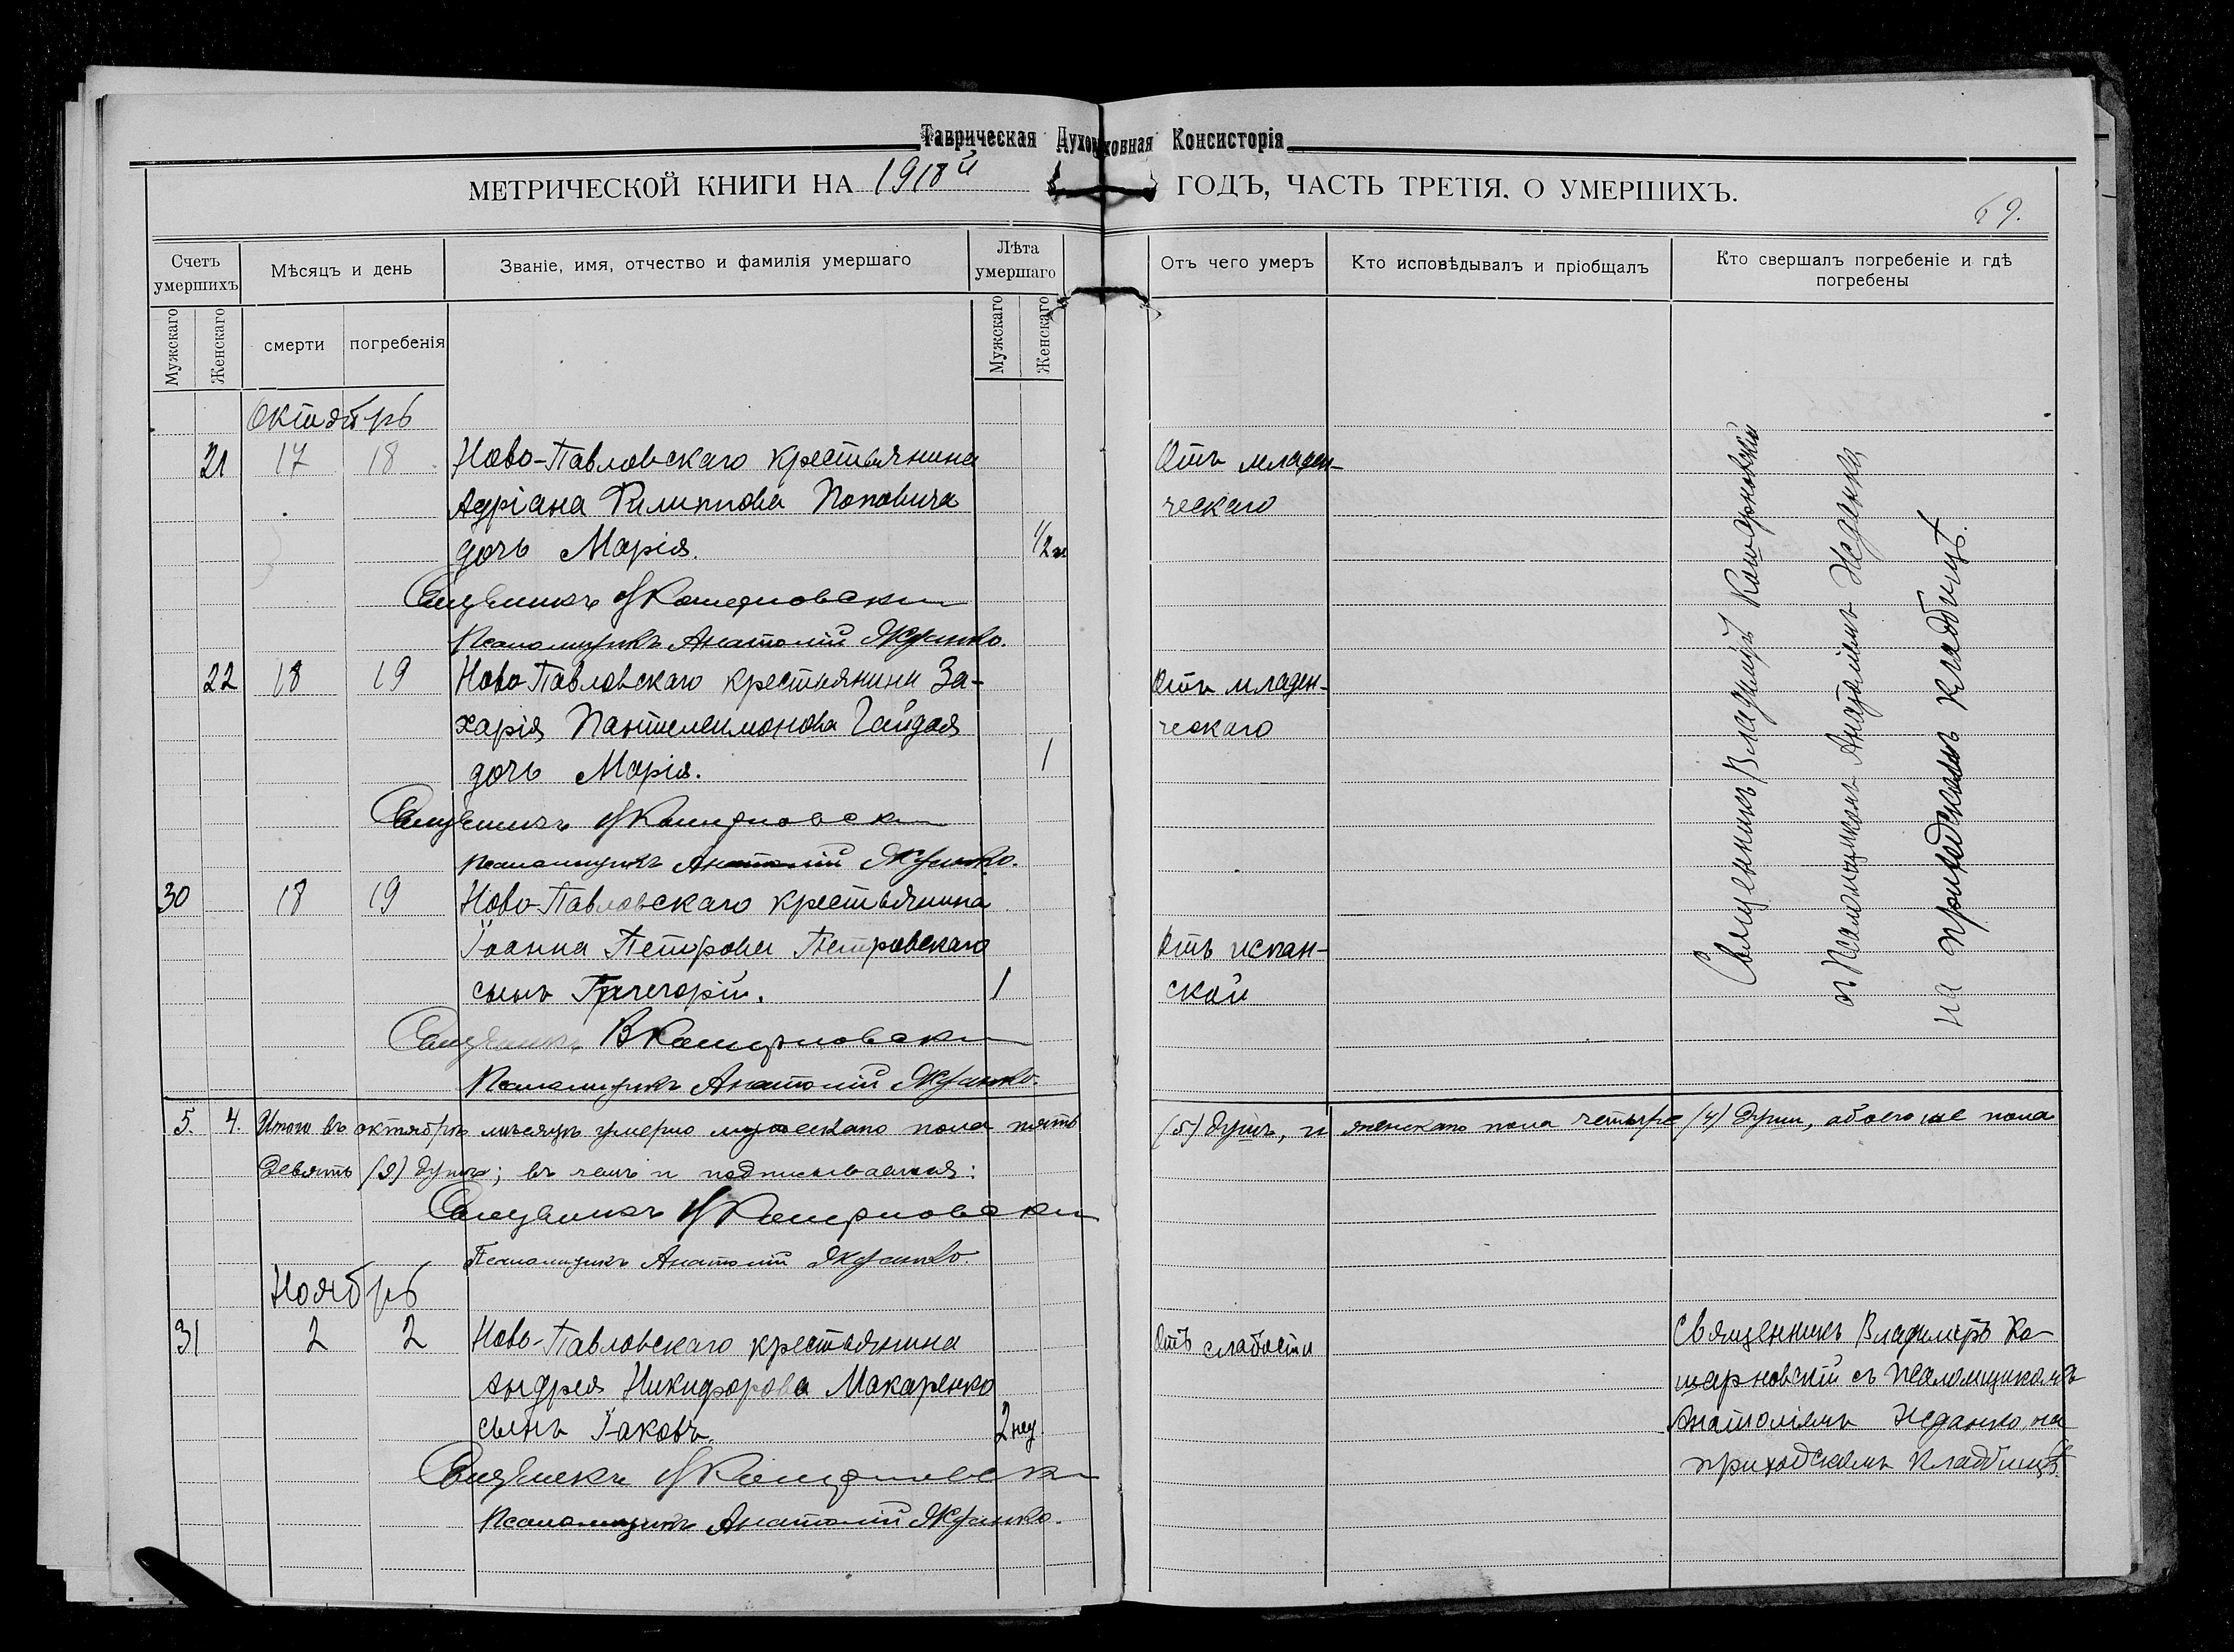 Таврическая Духовная Консисторія
МЕТРИЧЕСКОЙ КНИГИ НА 1918й ГОДЪ, ЧАСТЬ ТРЕТІЯ, О УМЕРШИХЪ.
69.
Счетъ умершихъ
Мѣсяцъ и день
Званіе, имя, отчество и фамилія умершаго
Лѣта умершаго
Отъ чего умеръ
Кто исповѣдывалъ и пріобщалъ
Кто свершалъ погребеніе и гдѣ погребены
Мужскаго
Женскаго
смерти
погребенія
Мужскаго
Женскаго
Октябрь
21 17 18 Ново-Павловскаго крестьянина Отъ младен-
Адріана Филиппова Поповича ческаго
дочь Марія. 1/2 м
Священникъ В Кошарновскій
Псаломщикъ Анатолій Жданко.
22 18 19 Ново-Павловскаго крестьянина За- Отъ младен-
харія Пантелеимонова Гайдая ческаго
дочь Марія. 1
Священникъ В Кошарновскій
Псаломщикъ Анатолій Жданко.
30 18 19 Ново-Павловскаго крестьянина
Іоанна Петрова Петровскаго Отъ испан-
сынъ Григорій. 1 ской
Священникъ В Кошарновскій
Псаломщикъ Анатолій Жданко.
Священникъ Владиміръ Кошарновскій
съ Псаломщикомъ Анатоліемъ Жданко
на приходскомъ кладбищѣ.
5. 4. Итого въ октябрѣ мѣсяцѣ умерло мужескаго пола пять (5) душъ, и женскаго пола четыре (4) души, обоего же пола
девять (9) душъ; въ чемъ и подписываемся:
Священникъ В Кошарновскій
Псаломщикъ Анатолій Жданко.
Ноябрь
31 2 2 Ново-Павловскаго крестьянина Отъ слабости Священникъ Владиміръ Ко-
Андрея Никифорова Макаренко шарновскій съ Псаломщикомъ
сынъ Іаковъ. 2 нед. Анатоліемъ Жданко, на
Священникъ В Кошарновскій приходскомъ кладбищѣ.
Псаломщикъ Анатолій Жданко.